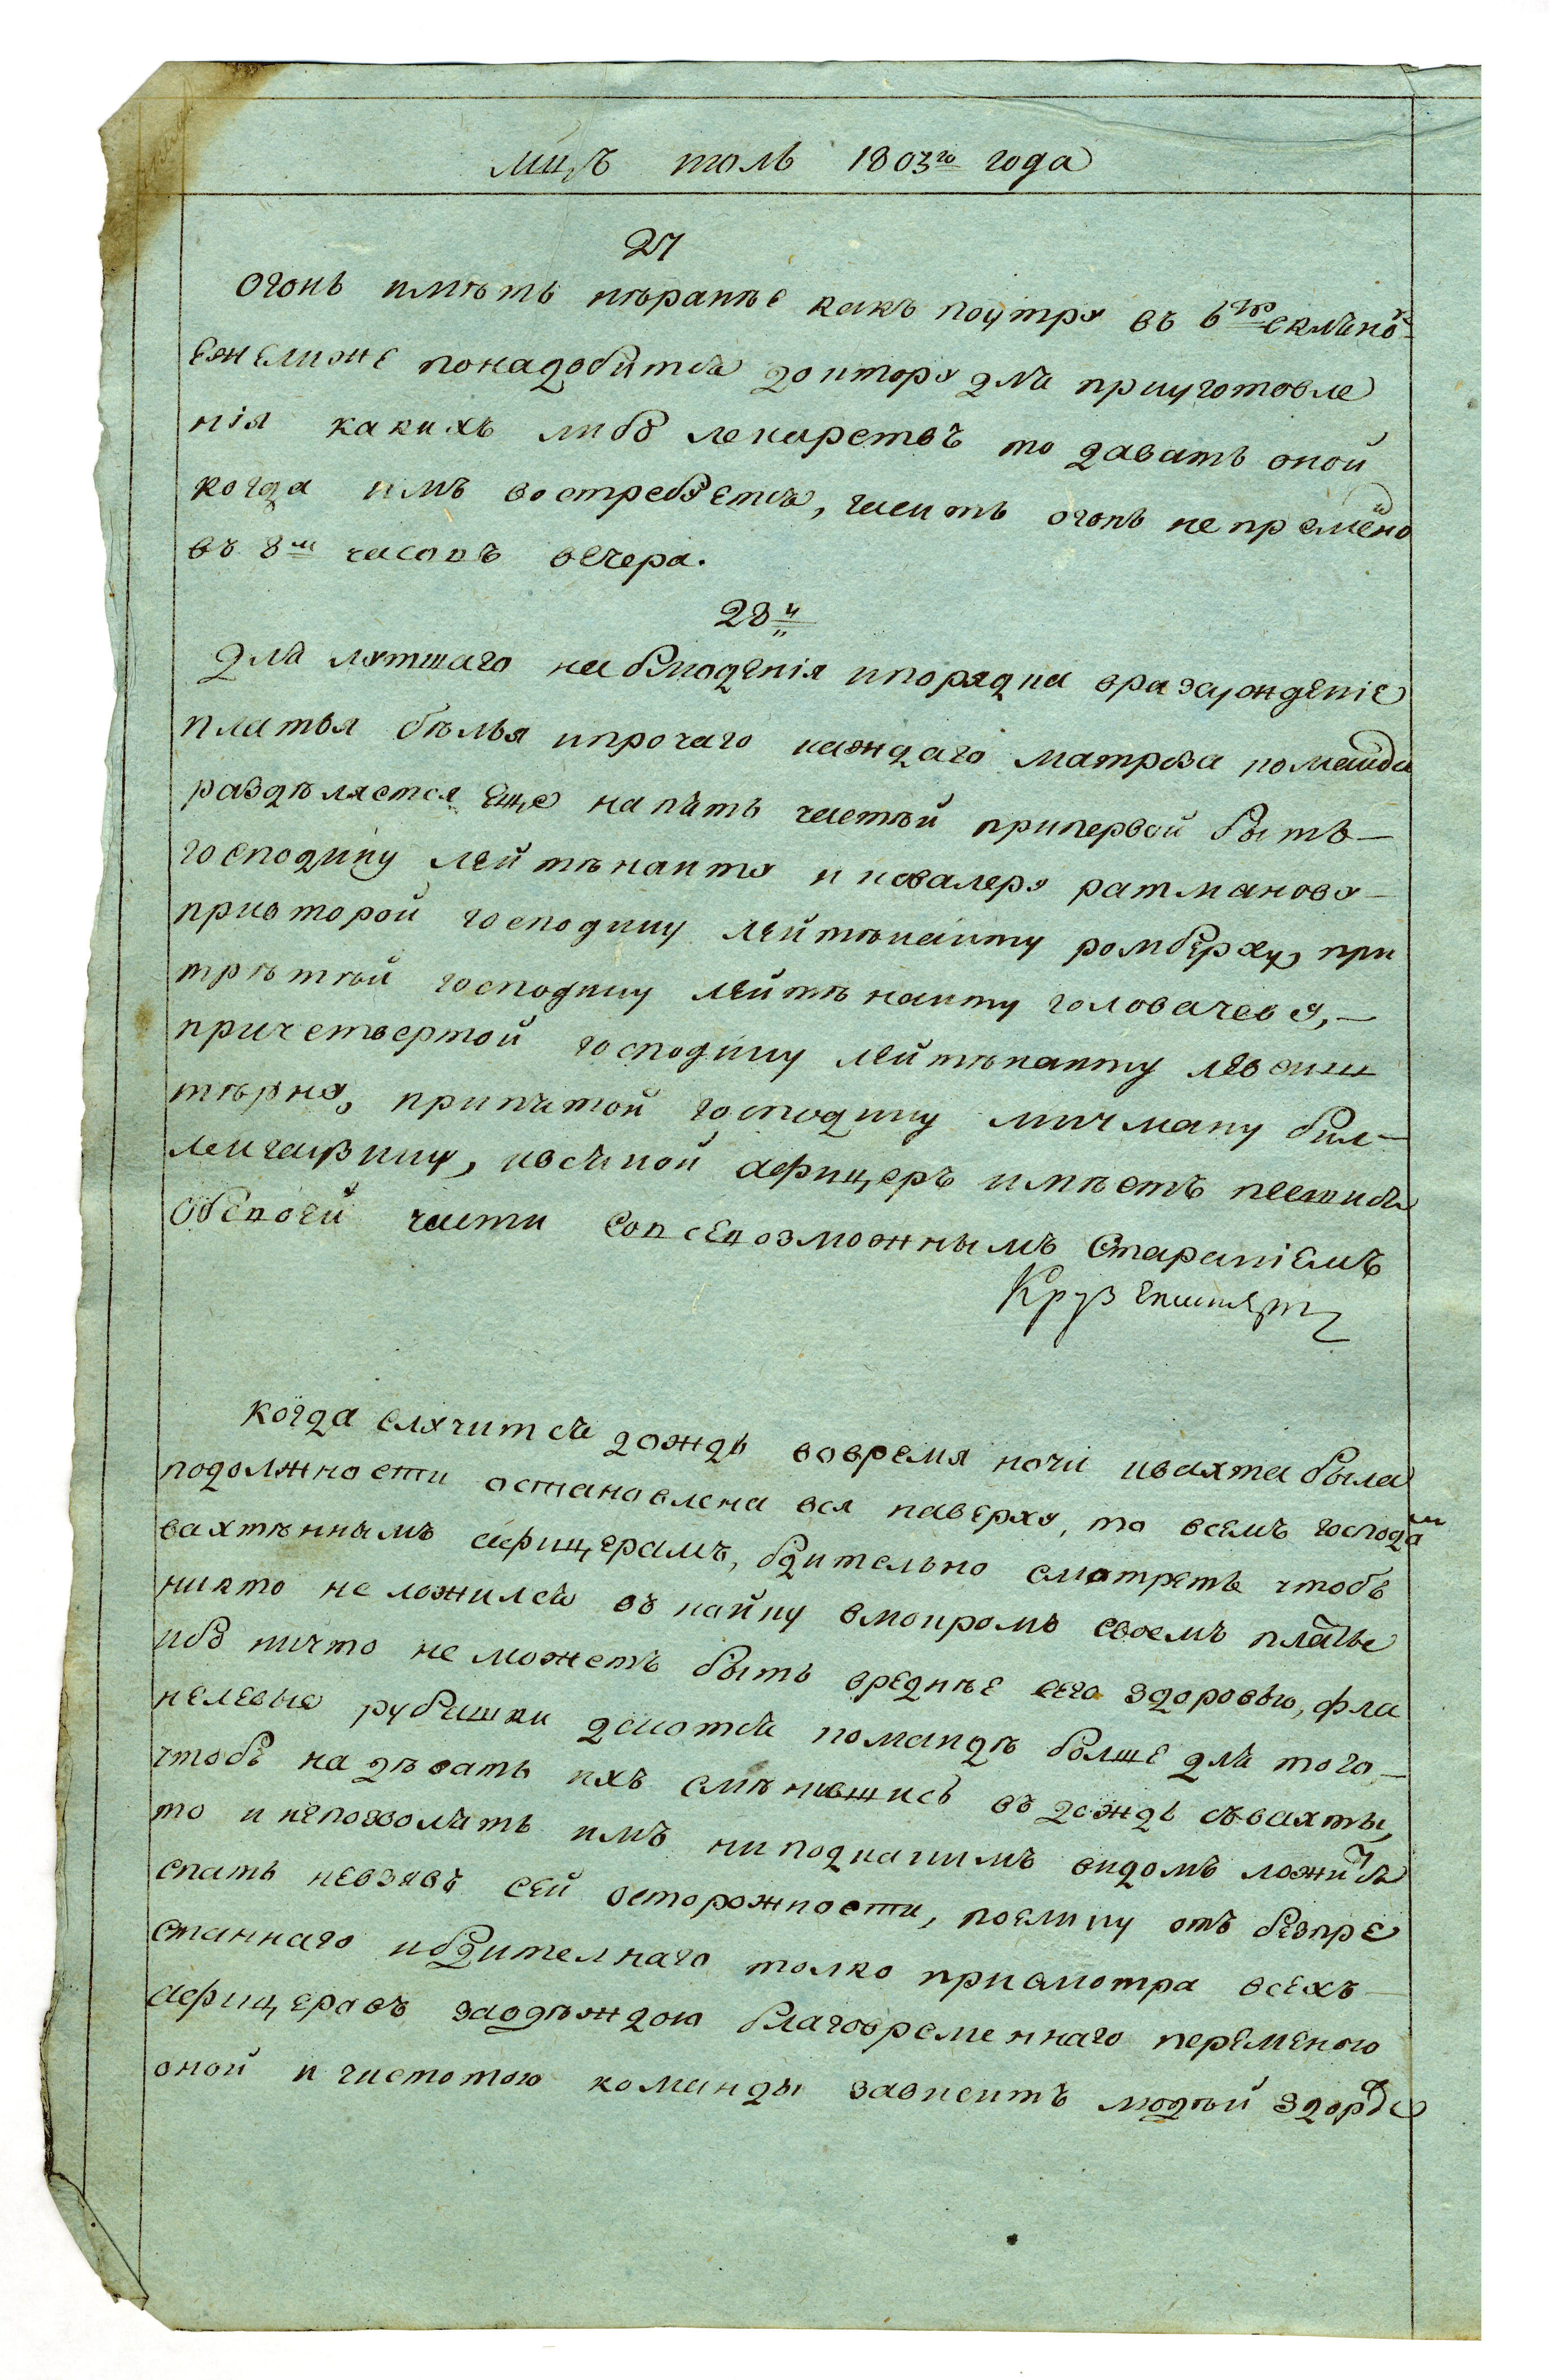 мцъ июль 1803го года
27
огонь имѣть нѣранѣе какъ поутру въ 6ть склянокъ
ежелиже понадобится доктору для приуготовле
нія какихъ либо лекарствъ то давать оной
когда имъ востребуется, гасить огонь непремѣно
въ 8м часовъ вечера.
28й
для лутшаго наблюденія ипорядка вразсужденіе
платья бѣлья ипрочаго каждаго матроза команда
раздѣляется еще напять частѣй припервой быть —
господину лейтѣнанту и кавалеру ратманову —
привторой господину лейтѣнанту ромберху, при
трѣтѣй господину лейтѣнанту головачеву, —
причетвертой господину лейтѣнанту левенш
тѣрну, припятой господину мичману бил-
ленгаузину, ивсякой афицеръ имѣетъ пещися
обевоей части совсевозможнымъ стараніемъ
Крузенштернъ
когда случится дождь вовремя ночи ивахта была
подолжности остановлена вся наверху, то всемъ господамъ
вахтѣннымъ афицерамъ, бдительно смотреть чтобъ
никто неложился въ койку вмокромъ своемъ платье
ибо ничто неможетъ быть вреднѣе сего здоровью, фла
нелевые рубашки даются командѣ болше для того —
чтобъ надѣвать ихъ смѣнившись въ дождь съвахты,
то и непозволять имъ ниподкакимъ видомъ ложится
спать невзявъ сей осторожности, поелику отъ безпре
станнаго ибдителнаго толко присмотра всехъ —
афицеровъ заодѣждою благовременнаго переменою
оной и чистотою команды зависитъ людѣй здоровье